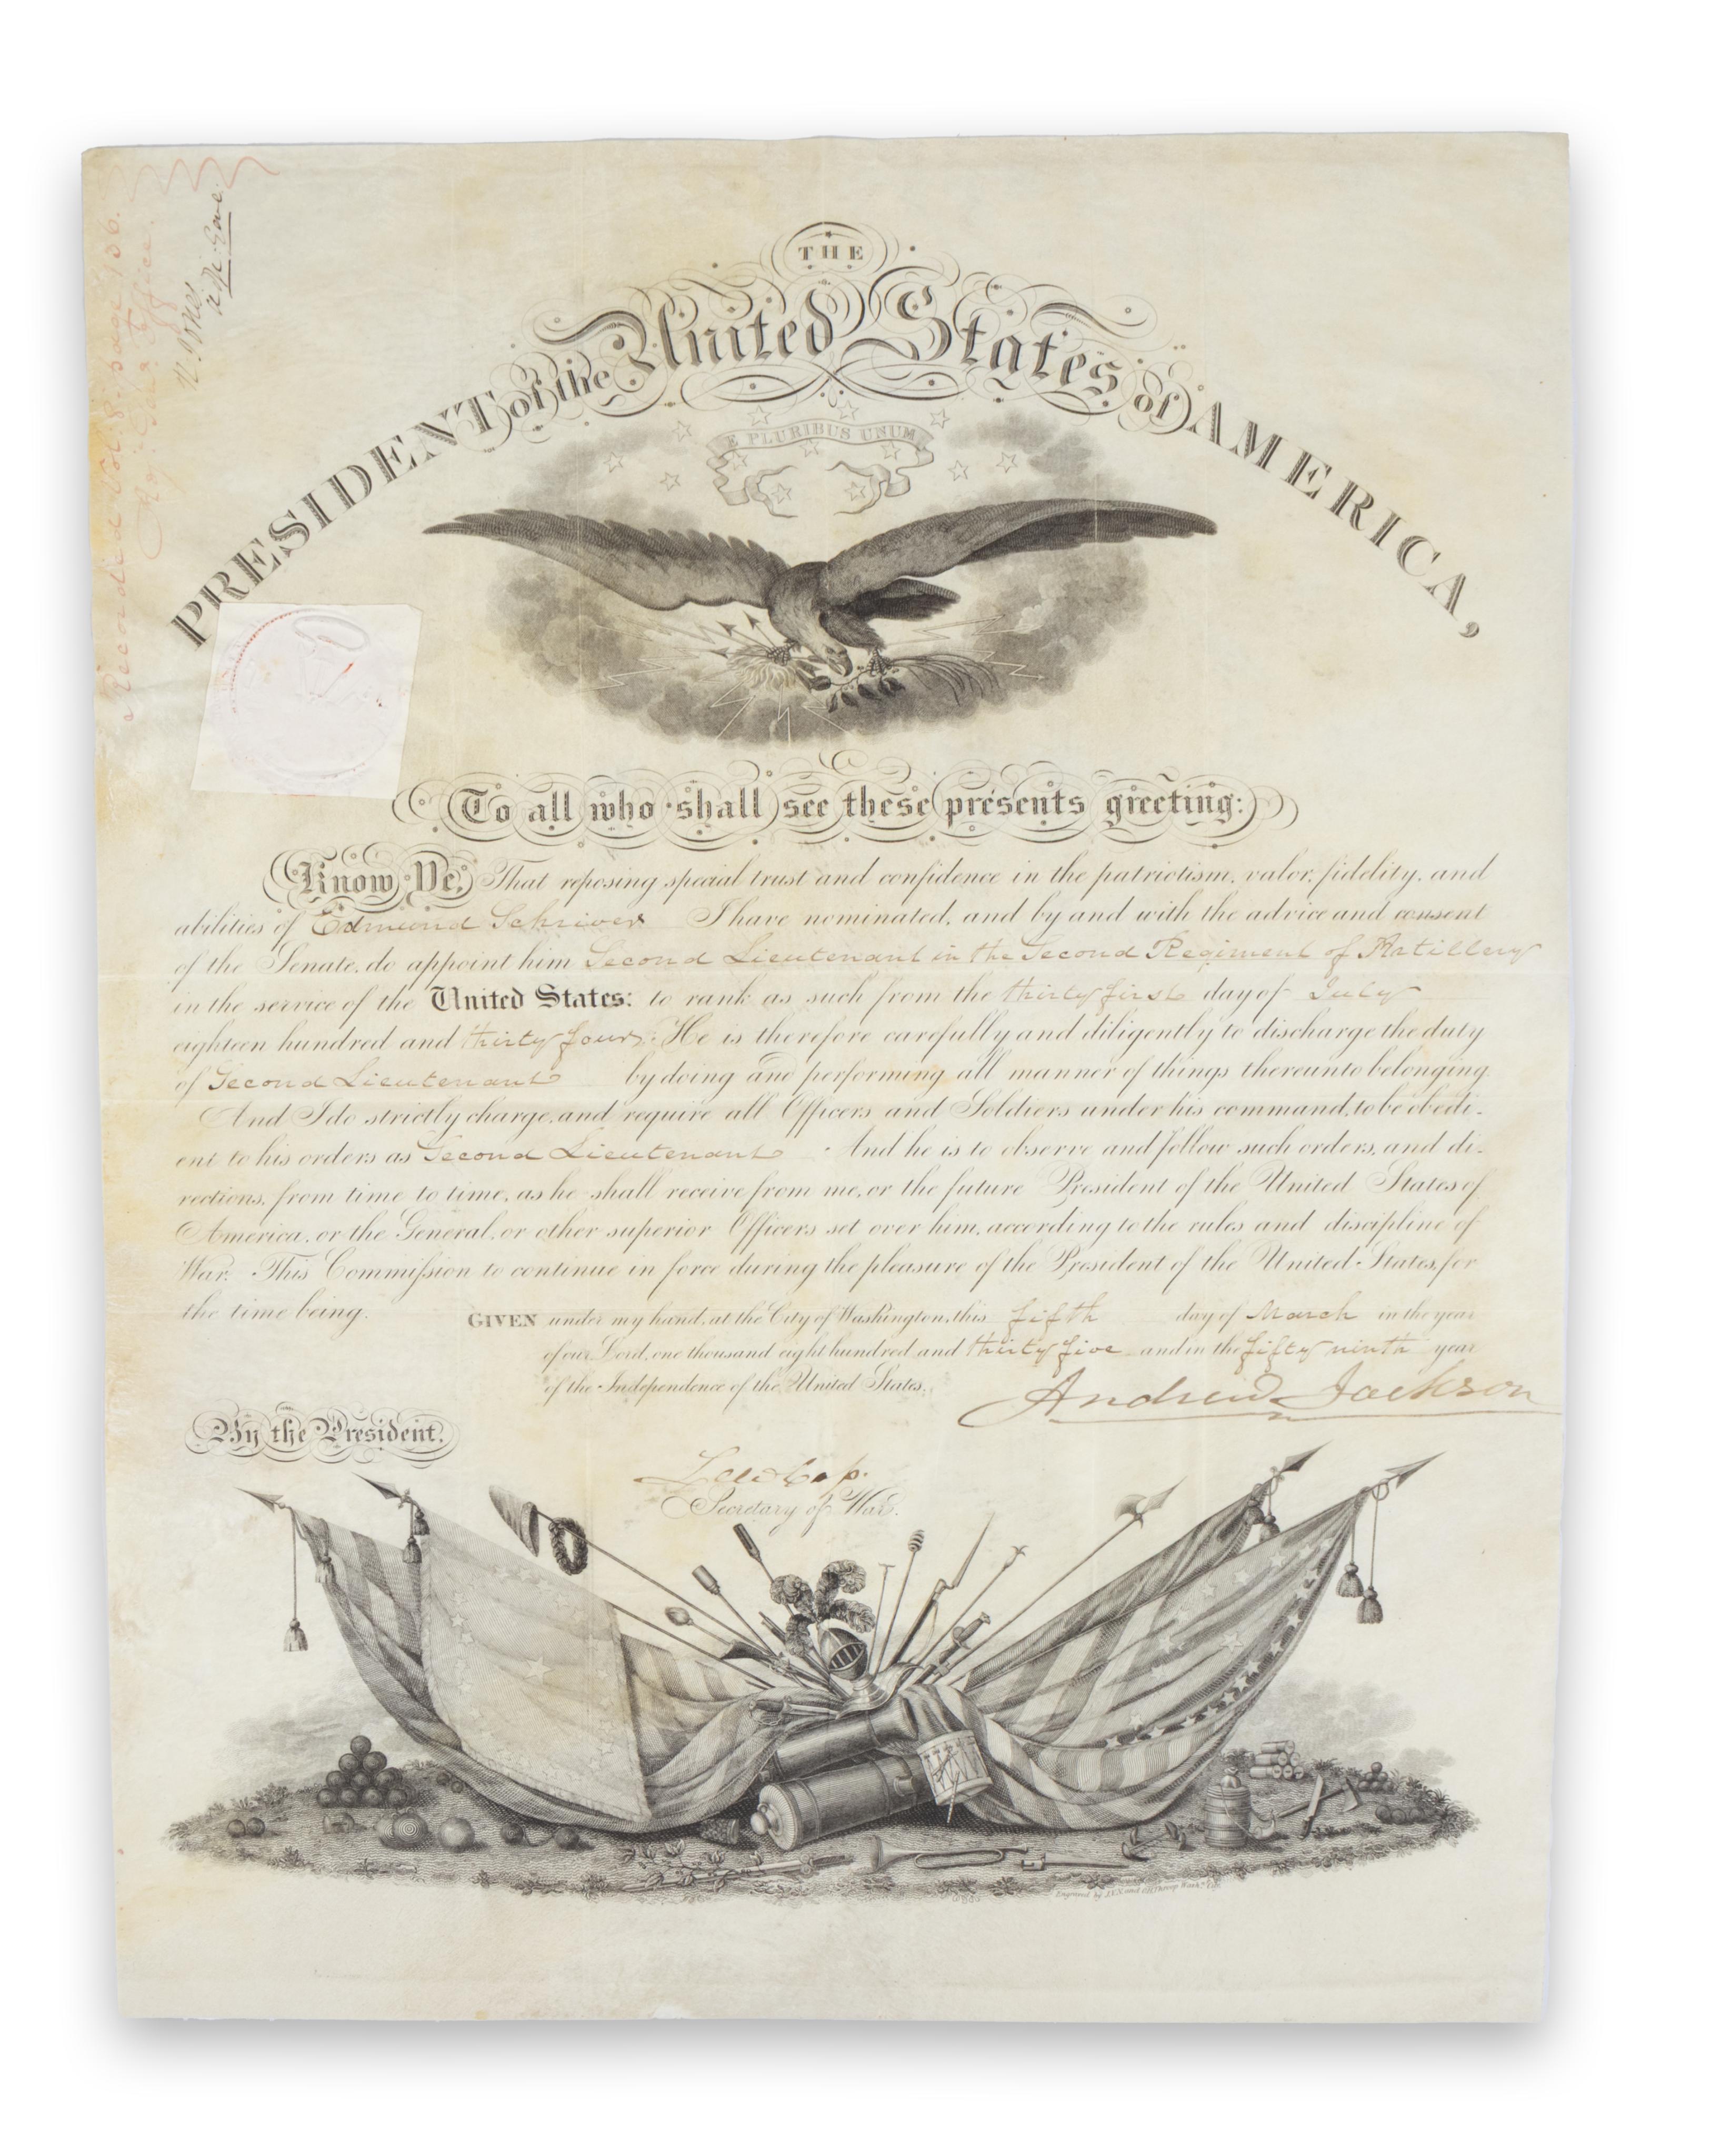 THE
PRESIDENT of the United States of AMERICA,
E PLURIBUS UNUM
To all who shall see these presents greeting:
Know Ye, That reposing special trust and confidence in the patriotism, valor, fidelity, and
abilities of Edmund Schriver I have nominated, and by and with the advice and consent
of the Senate, do appoint him Second Lieutenant in the Second Regiment of Artillery
in the service of the United States: to rank as such from the thirty first day of July
eighteen hundred and thirty four. He is therefore carefully and diligently to discharge the duty
of Second Lieutenant by doing and performing all manner of things thereunto belonging.
And I do strictly charge, and require all Officers and Soldiers under his command, to be obedi-
ent to his orders as Second Lieutenant. And he is to observe and follow such orders, and di-
rections, from time to time, as he shall receive from me, or the future President of the United States of
America, or the General, or other superior Officers set over him, according to the rules and discipline of
War. This Commission to continue in force during the pleasure of the President of the United States, for
the time being.
GIVEN under my hand, at the City of Washington, this fifth day of March in the year
of our Lord, one thousand eight hundred and thirty five and in the fifty ninth year
of the Independence of the United States.
Andrew Jackson
By the President.
Lew Cass
Secretary of War.
Recorded Vol. 8. page 136.
Engraved by